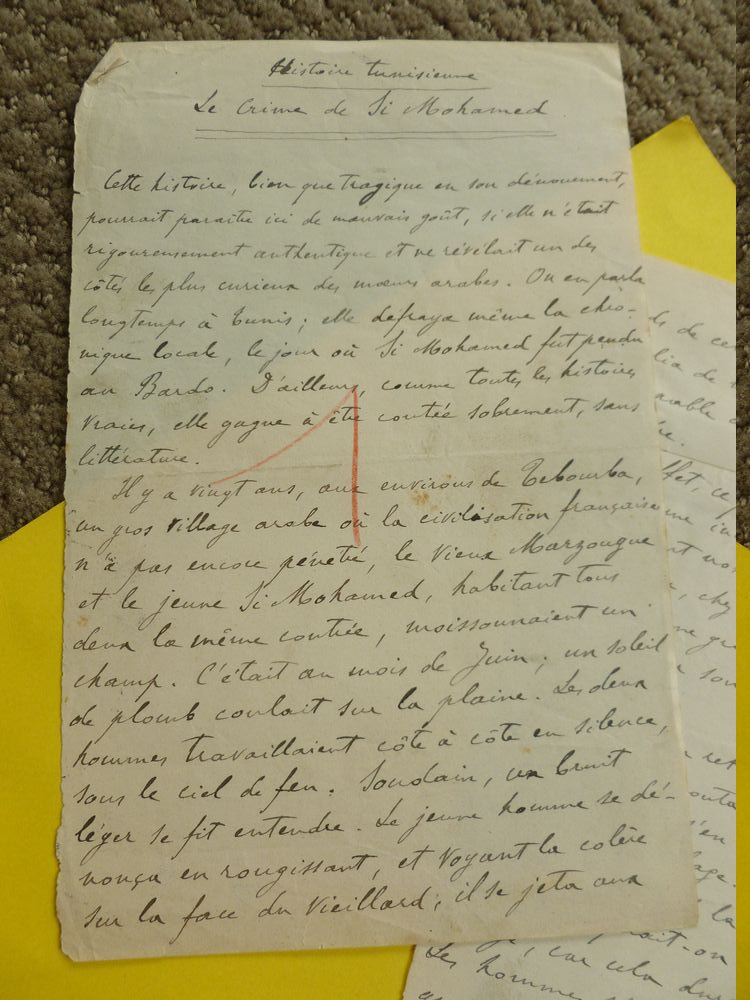 Histoire tunisienne
Le Crime de Si Mohamed
Cette histoire, bien que tragique en son dénouement,
pourrait paraître ici de mauvais goût, si elle n'était
rigoureusement authentique et ne révélait un des
côtés les plus curieux des mœurs arabes. On en parla
longtemps à Tunis ; elle defraya même la chro-
nique locale, le jour où Si Mohamed fut pendu
au Bardo. D'ailleurs, comme toutes les histoires
vraies, elle gagne à être contée sobrement, sans
littérature.
Il y a vingt ans, aux environs de Tebourba,
un gros village arabe où la civilisation française
n'a pas encore pénétré, le vieux Marzougue
et le jeune Si Mohamed, habitant tous
deux la même contrée, moissonnaient un
champ. C'était au mois de Juin ; un soleil
de plomb coulait sur la plaine. Les deux
hommes travaillaient côte à côte en silence,
sous le ciel de feu. Soudain, un bruit
léger se fit entendre. Le jeune homme se dé-
nonça en rougissant, et voyant la colère
sur la face du vieillard, il se jeta aux
ds de
able
chez
son
car cela
Les hommes